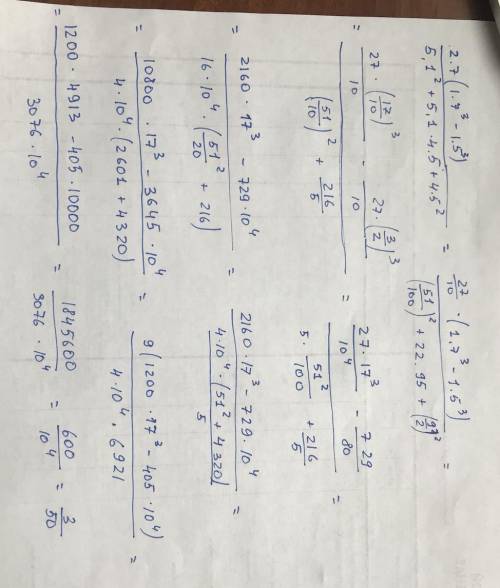 2.7(1.7³ - 1.5³) / 5,1² + 5,1·4.5 + 4.5² = 27/10 · (1.7³ - 1.5³) / (51/100)² + 22.95 + (9/2)² =
= 27·(17/10)³ / 10 - 27·(3/2)³ / 10 / (51/10)² + 216/5 = 27·17³ / 10⁴ - 729/80 / 5· 51²/100 + 216/5 =
= 2160·17³ - 729·10⁴ / 16·10⁴·(51²/20 + 216) = 2160·17³ - 729·10⁴ / 4·10⁴·(51² + 4320)/5 =
= 10800·17³ - 3645·10⁴ / 4·10⁴·(2601 + 4320) = 9(1200·17³ - 405·10⁴) / 4·10⁴·6921 =
= 1200·4913 - 405·10000 / 3076·10⁴ = 1845600 / 3076·10⁴ = 600/10⁴ = 3/50